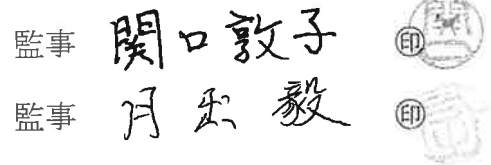 監事 関口敦子 ㊞
監事 月出 毅 ㊞